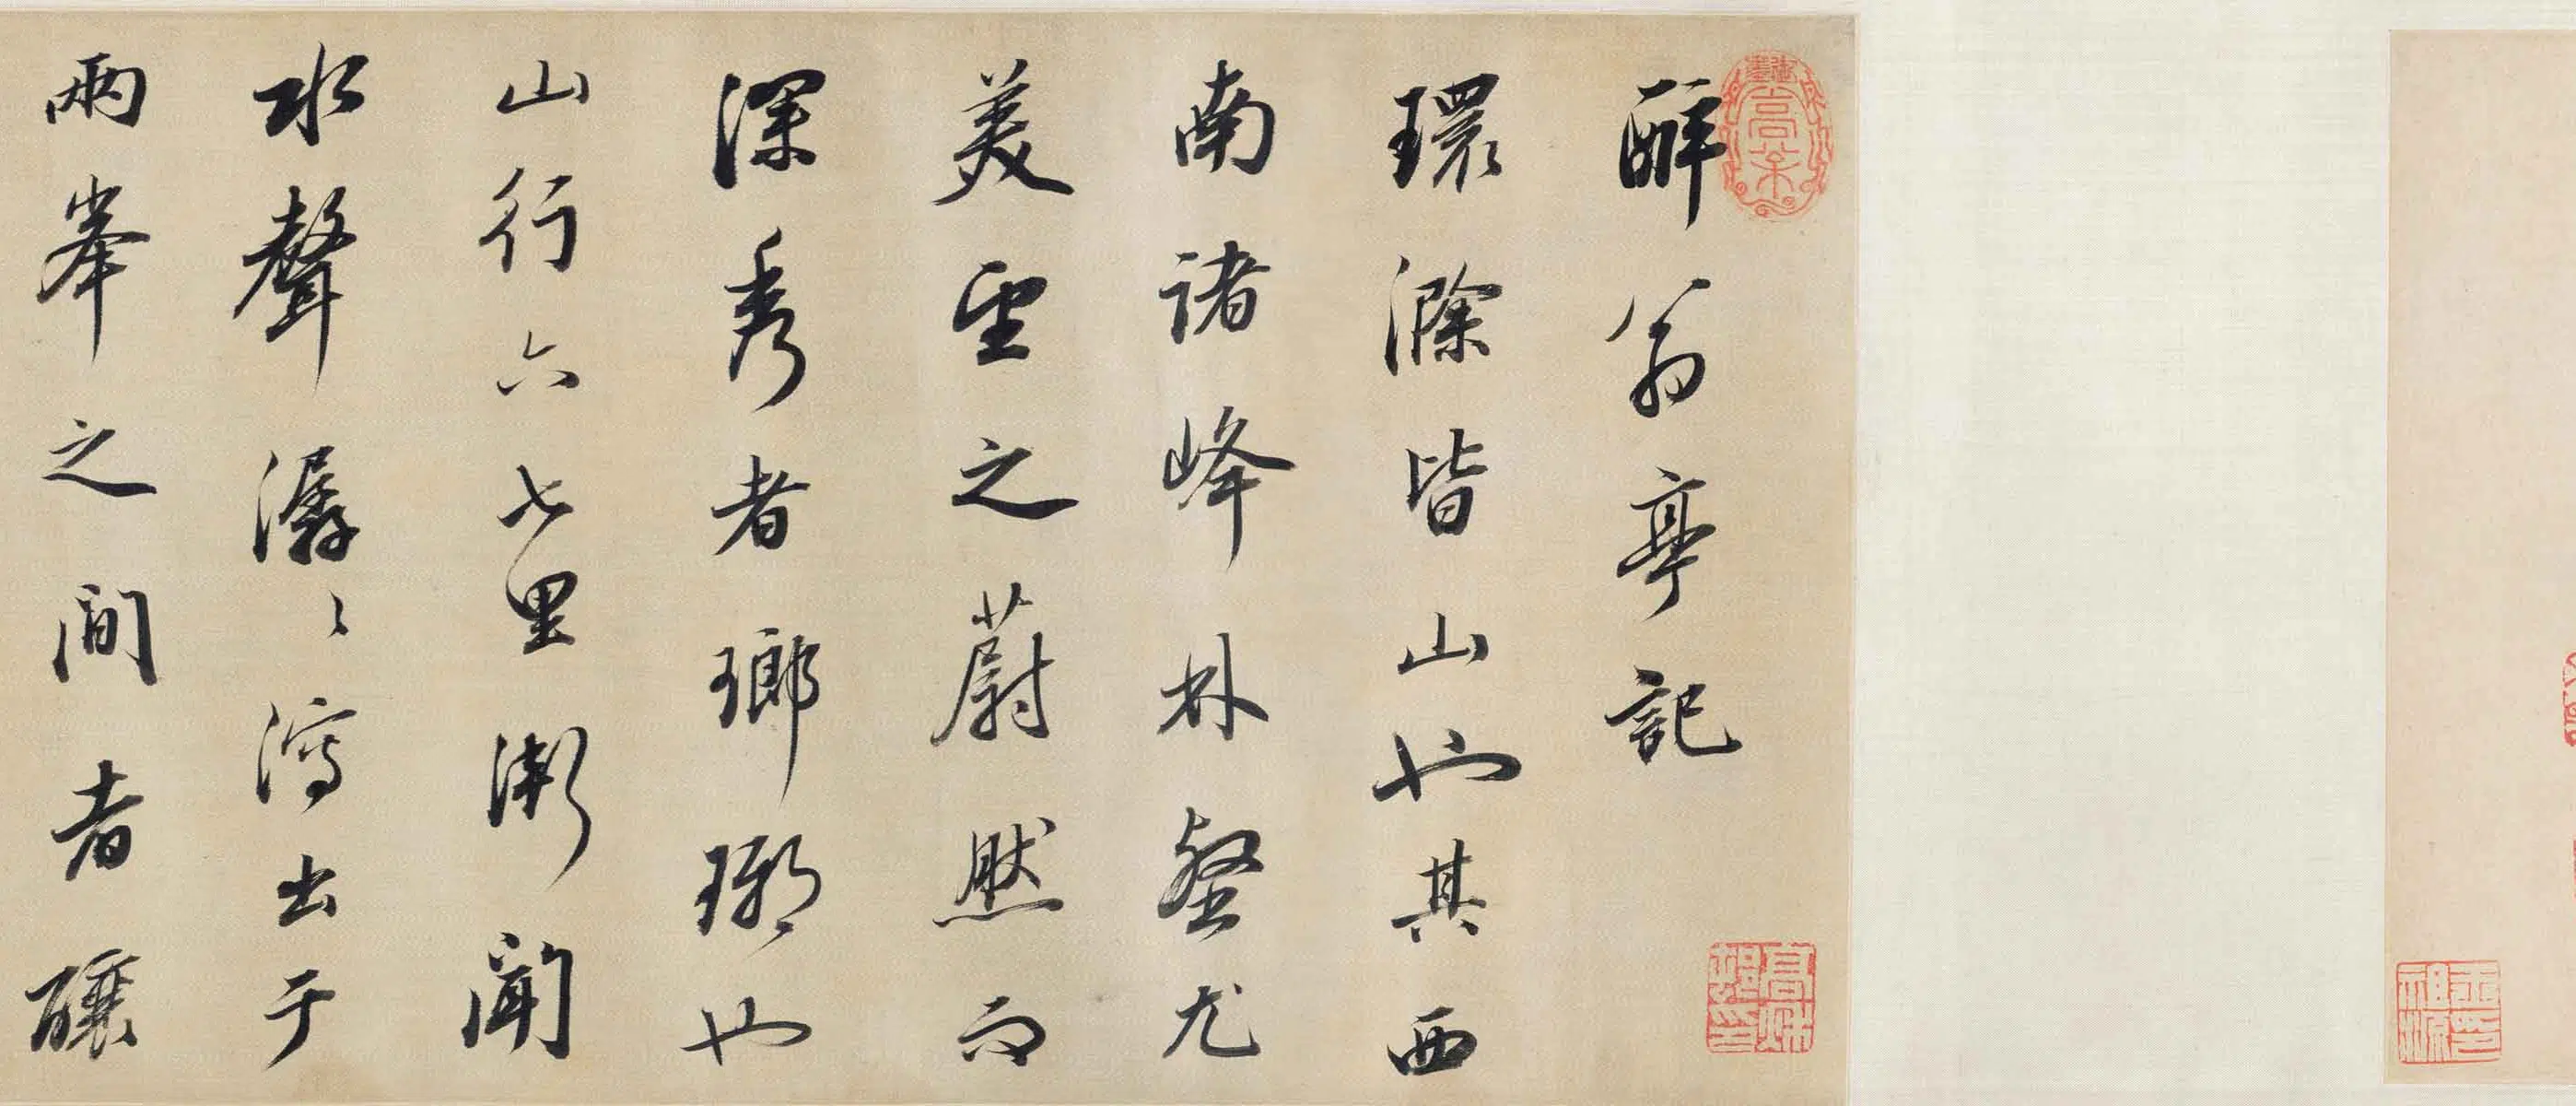 醉翁亭記
環滁皆山也其西
南諸峰林壑尤
美望之蔚然而
深秀者瑯琊也
山行六七里漸聞
水聲潺〻瀉出于
兩峯之間者釀